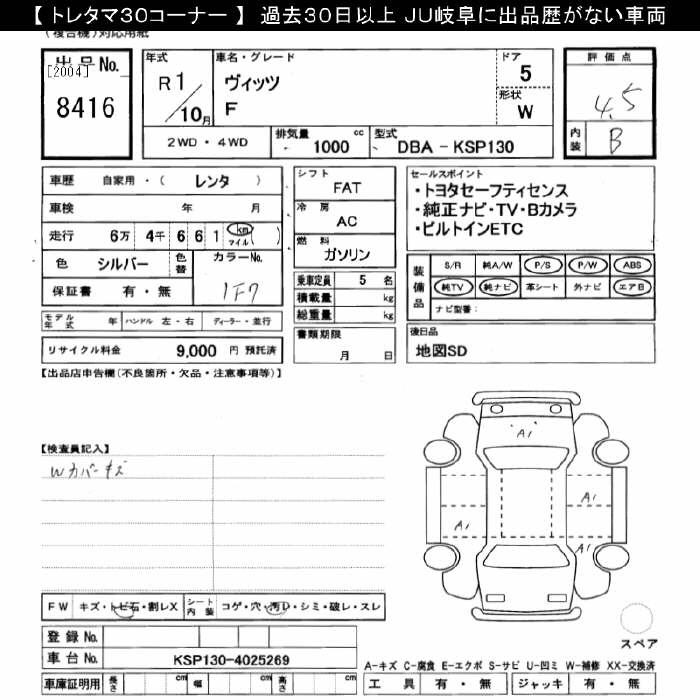 【 トレタマ30コーナー 】 過去30日以上 JU岐阜に出品歴がない車両
(複合機)対応用紙
出品No.
[2004]
8416
年式
R 1 / 10 月
車名・グレード
ヴィッツ
F
ドア
5
形状
W
2WD ・ 4WD
排気量 1000 cc
型式 DBA - KSP130
評価点
4.5
内装 B
車歴 自家用・( レンタ )
車検 年 月
走行 6万 4千 6 6 1 km マイル ( )
色 シルバー 色替 カラーNo.
1F7
保証書 有・無
モデル年式 年 ハンドル 左・右 ディーラー・並行
リサイクル料金 9,000 円 預託済
シフト
FAT
冷房
AC
燃料
ガソリン
乗車定員 5 名
積載量 kg
総重量 kg
書類期限
月 日
セールスポイント
・トヨタセーフティセンス
・純正ナビ・TV・Bカメラ
・ビルトインETC
装備品
S/R 純A/W P/S P/W ABS
純TV 純ナビ 革シート 外ナビ エアB
ナビ型番:
後日品
地図SD
【出品店申告欄(不良箇所・欠品・注意事項等)】
【検査員記入】
Wカバーキズ
A1
A1
A1
A1
FW キズ・トビ石・割レX シート内装 コゲ・穴・汚レ・シミ・破レ・スレ
登録No.
車台No. KSP130-4025269
車庫証明用 長さ cm 幅 cm 高さ cm
スペア
A-キズ C-腐食 E-エクボ S-サビ U-凹ミ W-補修 XX-交換済
工具 有・無 ジャッキ 有・無